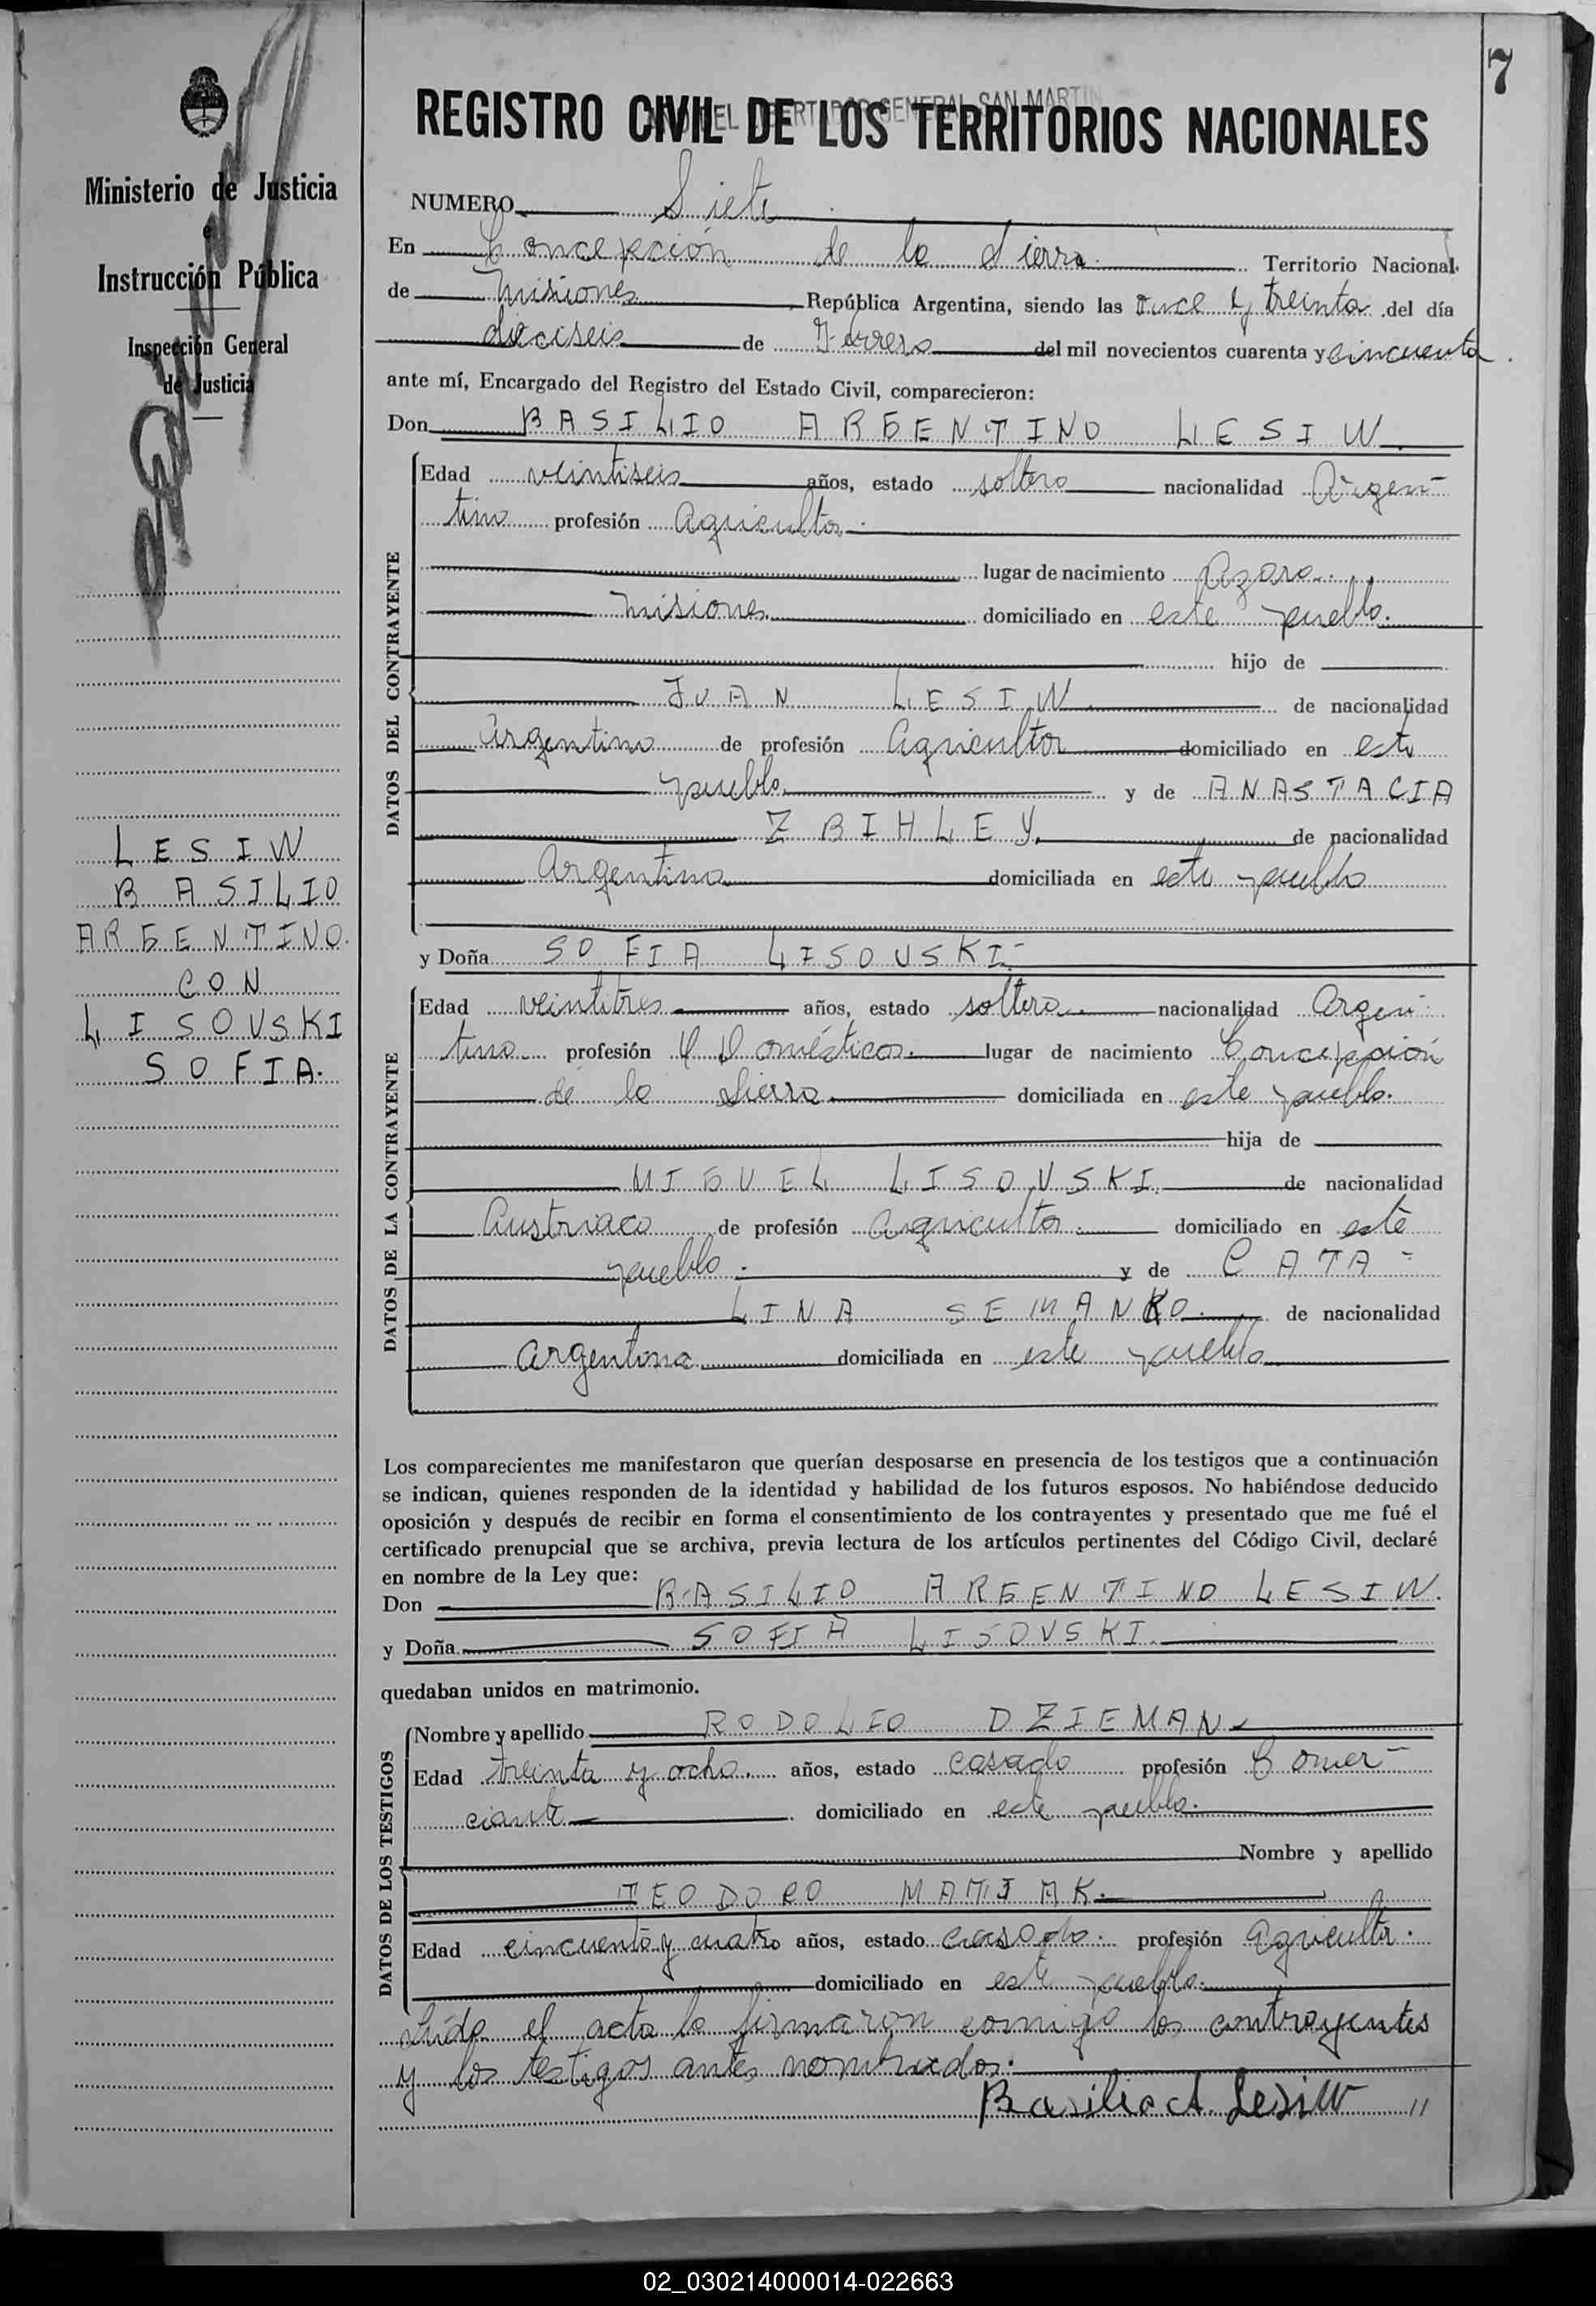 7
AÑO DEL LIBERTADOR GENERAL SAN MARTIN
REGISTRO CIVIL DE LOS TERRITORIOS NACIONALES
Ministerio de Justicia
e
Instrucción Pública
Inspección General
de Justicia
LESIW
BASILIO
ARGENTINO.
CON
LISOVSKI
SOFIA.
NUMERO Siete
En Concepción de la Sierra. Territorio Nacional
de Misiones República Argentina, siendo las once y treinta del día
dieciseis de Febrero del mil novecientos cuarenta y cincuenta.
ante mí, Encargado del Registro del Estado Civil, comparecieron:
Don BASILIO ARGENTINO LESIW.
DATOS DEL CONTRAYENTE
Edad veintiseis años, estado soltero nacionalidad Argen-
tino profesión Agricultor.
lugar de nacimiento Azara.
Misiones. domiciliado en este pueblo.
hijo de
JUAN LESIW de nacionalidad
Argentino de profesión Agricultor domiciliado en este
pueblo. y de ANASTACIA
ZBIHLEY. de nacionalidad
Argentina domiciliada en este pueblo
y Doña SOFIA LISOVSKI.-
DATOS DE LA CONTRAYENTE
Edad veintitres años, estado soltera. nacionalidad Argen-
tina profesión Q Domésticos. lugar de nacimiento Concepción
de la Sierra. domiciliada en este pueblo.
hija de
MIGUEL LISOVSKI. de nacionalidad
Austriaco de profesión agricultor. domiciliado en este
pueblo. y de CATA-
LINA SEMANKO. de nacionalidad
Argentina domiciliada en este pueblo
Los comparecientes me manifestaron que querían desposarse en presencia de los testigos que a continuación
se indican, quienes responden de la identidad y habilidad de los futuros esposos. No habiéndose deducido
oposición y después de recibir en forma el consentimiento de los contrayentes y presentado que me fué el
certificado prenupcial que se archiva, previa lectura de los artículos pertinentes del Código Civil, declaré
en nombre de la Ley que:
Don BASILIO ARGENTINO LESIW.
y Doña SOFIA LISOVSKI.
quedaban unidos en matrimonio.
DATOS DE LOS TESTIGOS
Nombre y apellido RODOLFO DZIEMAN
Edad treinta y ocho. años, estado casado profesión Comer-
ciante domiciliado en este pueblo.
Nombre y apellido
TEODORO MATIAK.
Edad cincuenta y cuatro años, estado casado. profesión agricultor.
domiciliado en este pueblo.
Leída el acta la firmaron comigo los contrayentes
y los testigos antes nombrados.
Basilio A. Lesiw "
02_030214000014-022663